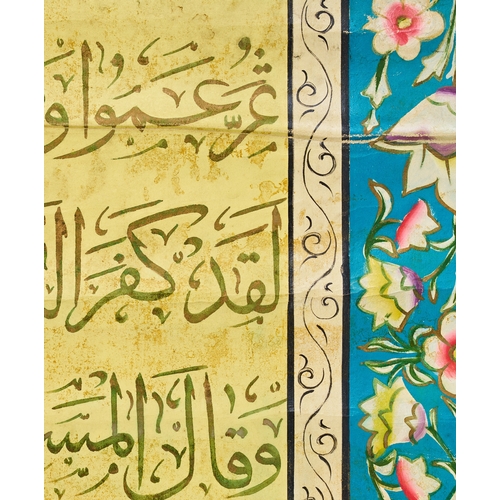 ثُمَّ عَمُوا وَ
لَقَدْ كَفَرَ ال
وَقَالَ المس